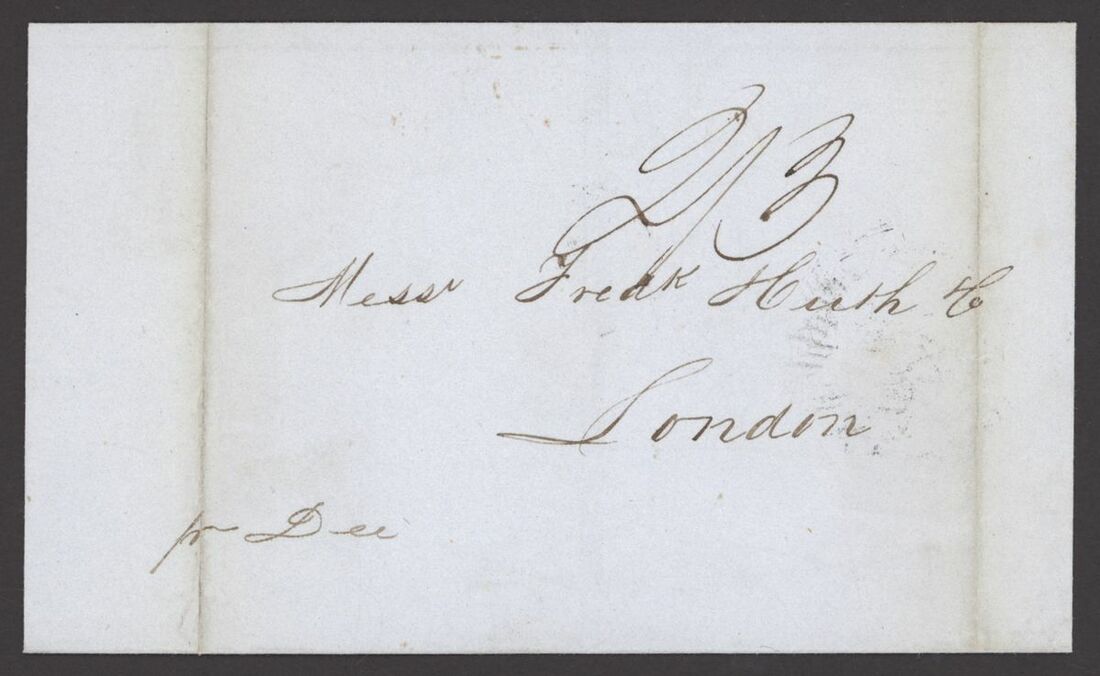 2/3
Messrs Fredk Huth & Co
London
pr Dee